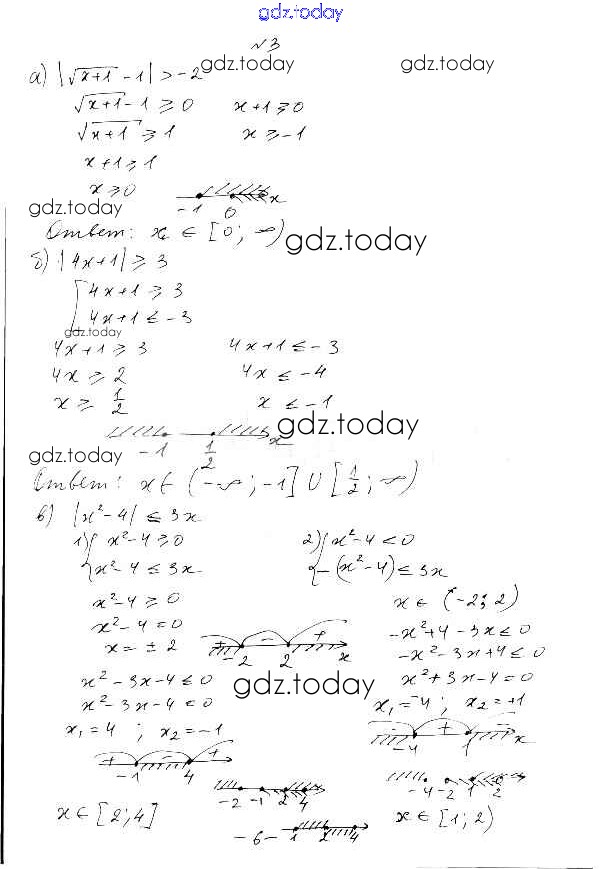 gdz.today
№3
gdz.today gdz.today
а) |√(x+1) - 1| > -2
√(x+1) - 1 ≥ 0 x+1 ≥ 0
√(x+1) ≥ 1 x ≥ -1
x+1 ≥ 1
x ≥ 0
-1 0 x
gdz.today
Ответ: x ∈ [0; ∞)
gdz.today
б) |4x+1| ≥ 3
[ 4x+1 ≥ 3
4x+1 ≤ -3
gdz.today
4x+1 ≥ 3 4x+1 ≤ -3
4x ≥ 2 4x ≤ -4
x ≥ 1/2 x ≤ -1
gdz.today
-1 1/2 x
gdz.today
Ответ: x ∈ (-∞; -1] ∪ [1/2; ∞)
в) |x²-4| ≤ 3x
1) { x²-4 ≥ 0 2) { x²-4 < 0
x²-4 ≤ 3x -(x²-4) ≤ 3x
x²-4 ≥ 0 x ∈ (-2; 2)
x²-4 = 0 -x²+4-3x ≤ 0
x = ± 2 + -2 - 2 + x -x²-3x+4 ≤ 0
x²-3x-4 ≤ 0 x²+3x-4 = 0
gdz.today
x²-3x-4 ≤ 0 x₁=-4; x₂=+1
x₁=4; x₂=-1 - -4 + 1 - x
+ -1 - 4 +
-2 -1 2 4 -4 -2 1 2
x ∈ [2; 4] x ∈ [1; 2)
-6- 1 2 4